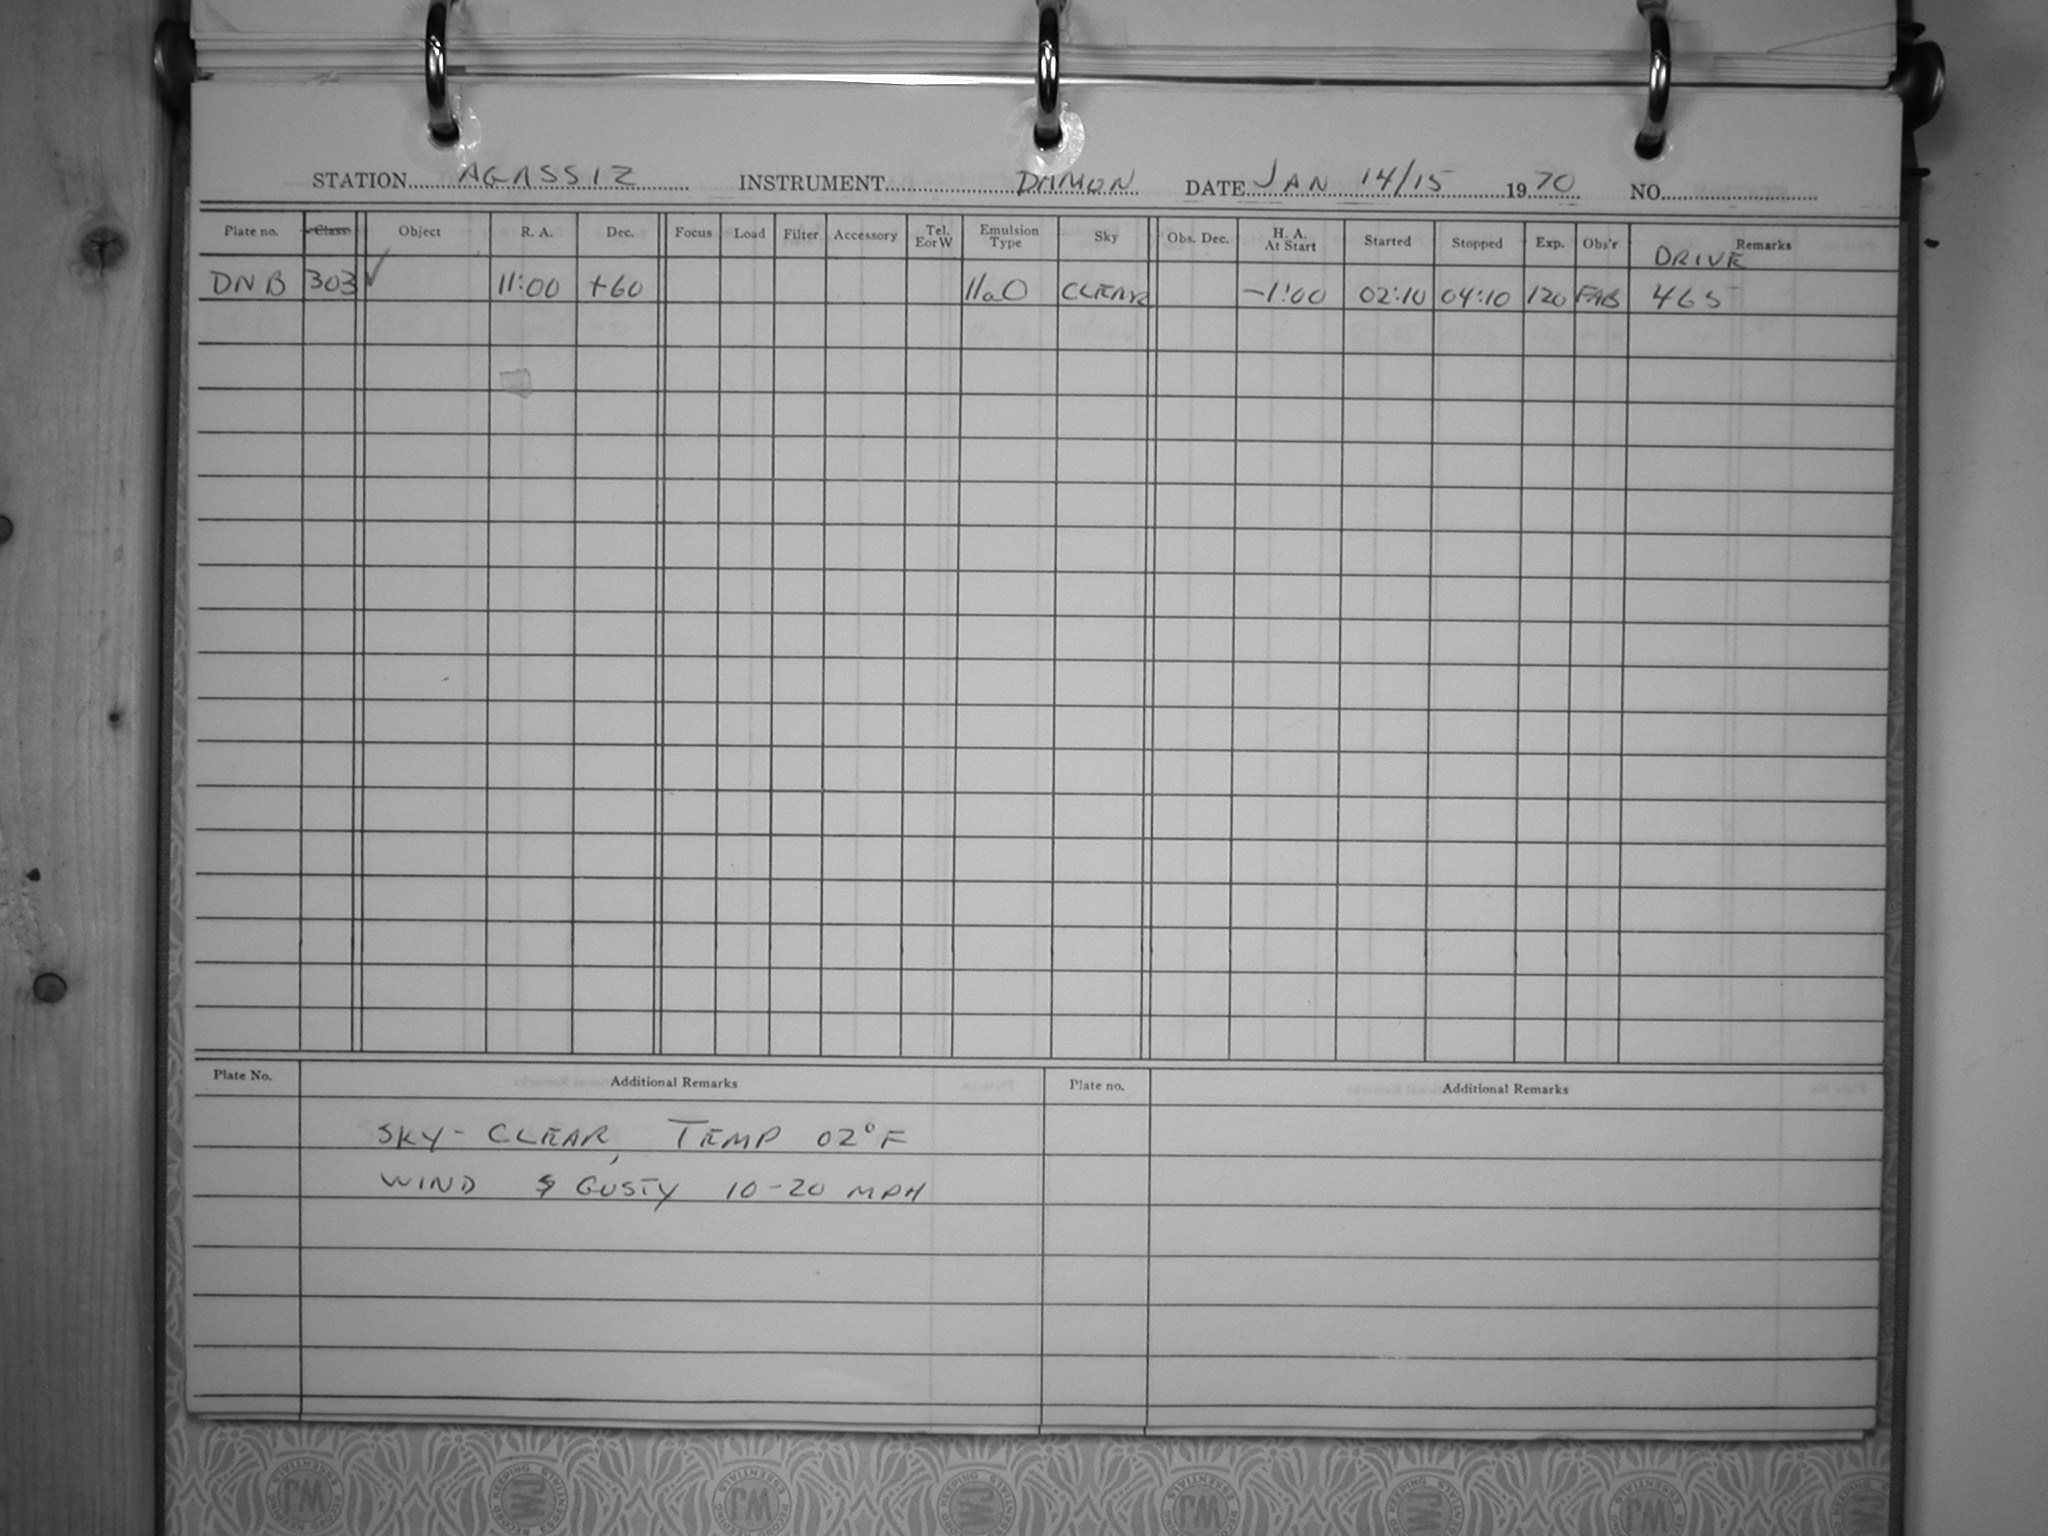 STATION AGASSIZ INSTRUMENT DAMON DATE JAN 14/15 1970 NO.
Plate no. Class Object R. A. Dec. Focus Load Filter Accessory Tel. E or W Emulsion Type Sky Obs. Dec. H. A. At Start Started Stopped Exp. Obs'r Remarks
DRIVE
DNB 303 ✓ 11:00 +60 IIaO CLEAR -1:00 02:10 04:10 120 FAB 465
Plate No. Additional Remarks Plate no. Additional Remarks
SKY - CLEAR, TEMP 02°F
WIND GUSTY 10-20 MPH
WJ RECORD KEEPING ESSENTIALS